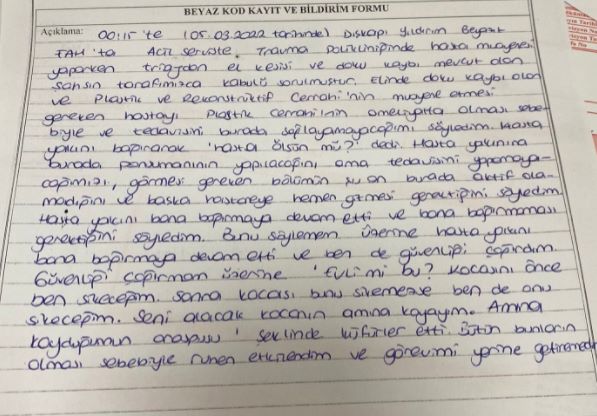 BEYAZ KOD KAYIT VE BİLDİRİM FORMU
Açıklama: 00:15'te (05.03.2022 tarihinde) Dışkapı Yıldırım Beyazıt
EAH'ta Acil serviste, Travma Polikliniğinde hasta muayenesi
yaparken triajdan el kesisi ve doku kaybı mevcut olan
şahsın tarafımızca kabulü sorulmuştur. Elinde doku kaybı olan
ve Plastik ve Rekonstrüktif Cerrahi'nin muayene etmesi
gereken hastayı Plastik Cerrahi'nin ameliyatta olması sebe-
biyle ve tedavisini burada sağlayamayacağımı söyledim. Hasta
yakını bağırarak 'hasta ölsün mü?' dedi. Hasta yakınına
burada pansumanının yapılacağını, ama tedavisini yapamaya-
cağımızı, görmesi gereken bölümün şu an burada aktif ola-
madığını ve başka hastaneye hemen gitmesi gerektiğini söyledim.
Hasta yakını bana bağırmaya devam etti ve bana bağırmaması
gerektiğini söyledim. Bunu söylemem üzerine hasta yakını
bana bağırmaya devam etti ve ben de güvenliği çağırdım.
Güvenliği çağırmam üzerine 'Evli mi bu? Kocasını önce
ben sikeceğim. Sonra kocası bunu sikemezse ben de onu
sikeceğim. Seni alacak kocanın amına koyayım. Amına
koyduğumun orospusu' şeklinde küfürler etti. Bütün bunların
olması sebebiyle ruhen etkilendim ve görevimi yerine getiremedim